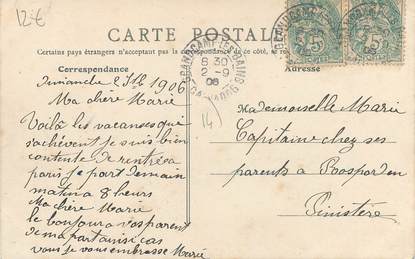 12€
CARTE POSTALE
Certains pays étrangers n'acceptant pas la correspondance de ce côté, se
Correspondance
Adresse
GRANDCAMP-LES-BAINS
8 30
2 - 9
06
CALVADOS
14
Dimanche 2 1906
Ma chère Marie
Voilà les vacances qui
s'achèvent je suis bien
contente de rentré a
paris je part demain
matin a 8 heurs
Ma chère Marie
le bonjour a vos parent
de ma part ainsi
vous je vous embrasse Marie
Mademoiselle Marie
Capitaine chez ses
parents a Rosporden
Finistère